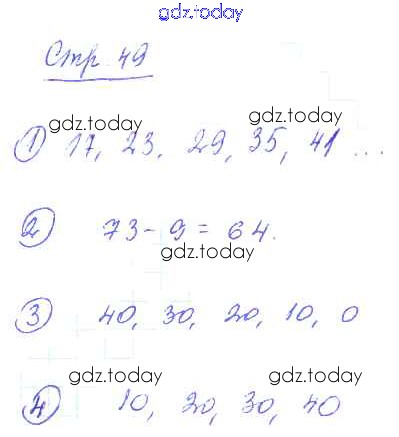 gdz.today
Стр. 49
gdz.today gdz.today
1 17, 23, 29, 35, 41 ...
2 73 - 9 = 64.
gdz.today
3 40, 30, 20, 10, 0
gdz.today gdz.today
4 10, 20, 30, 40